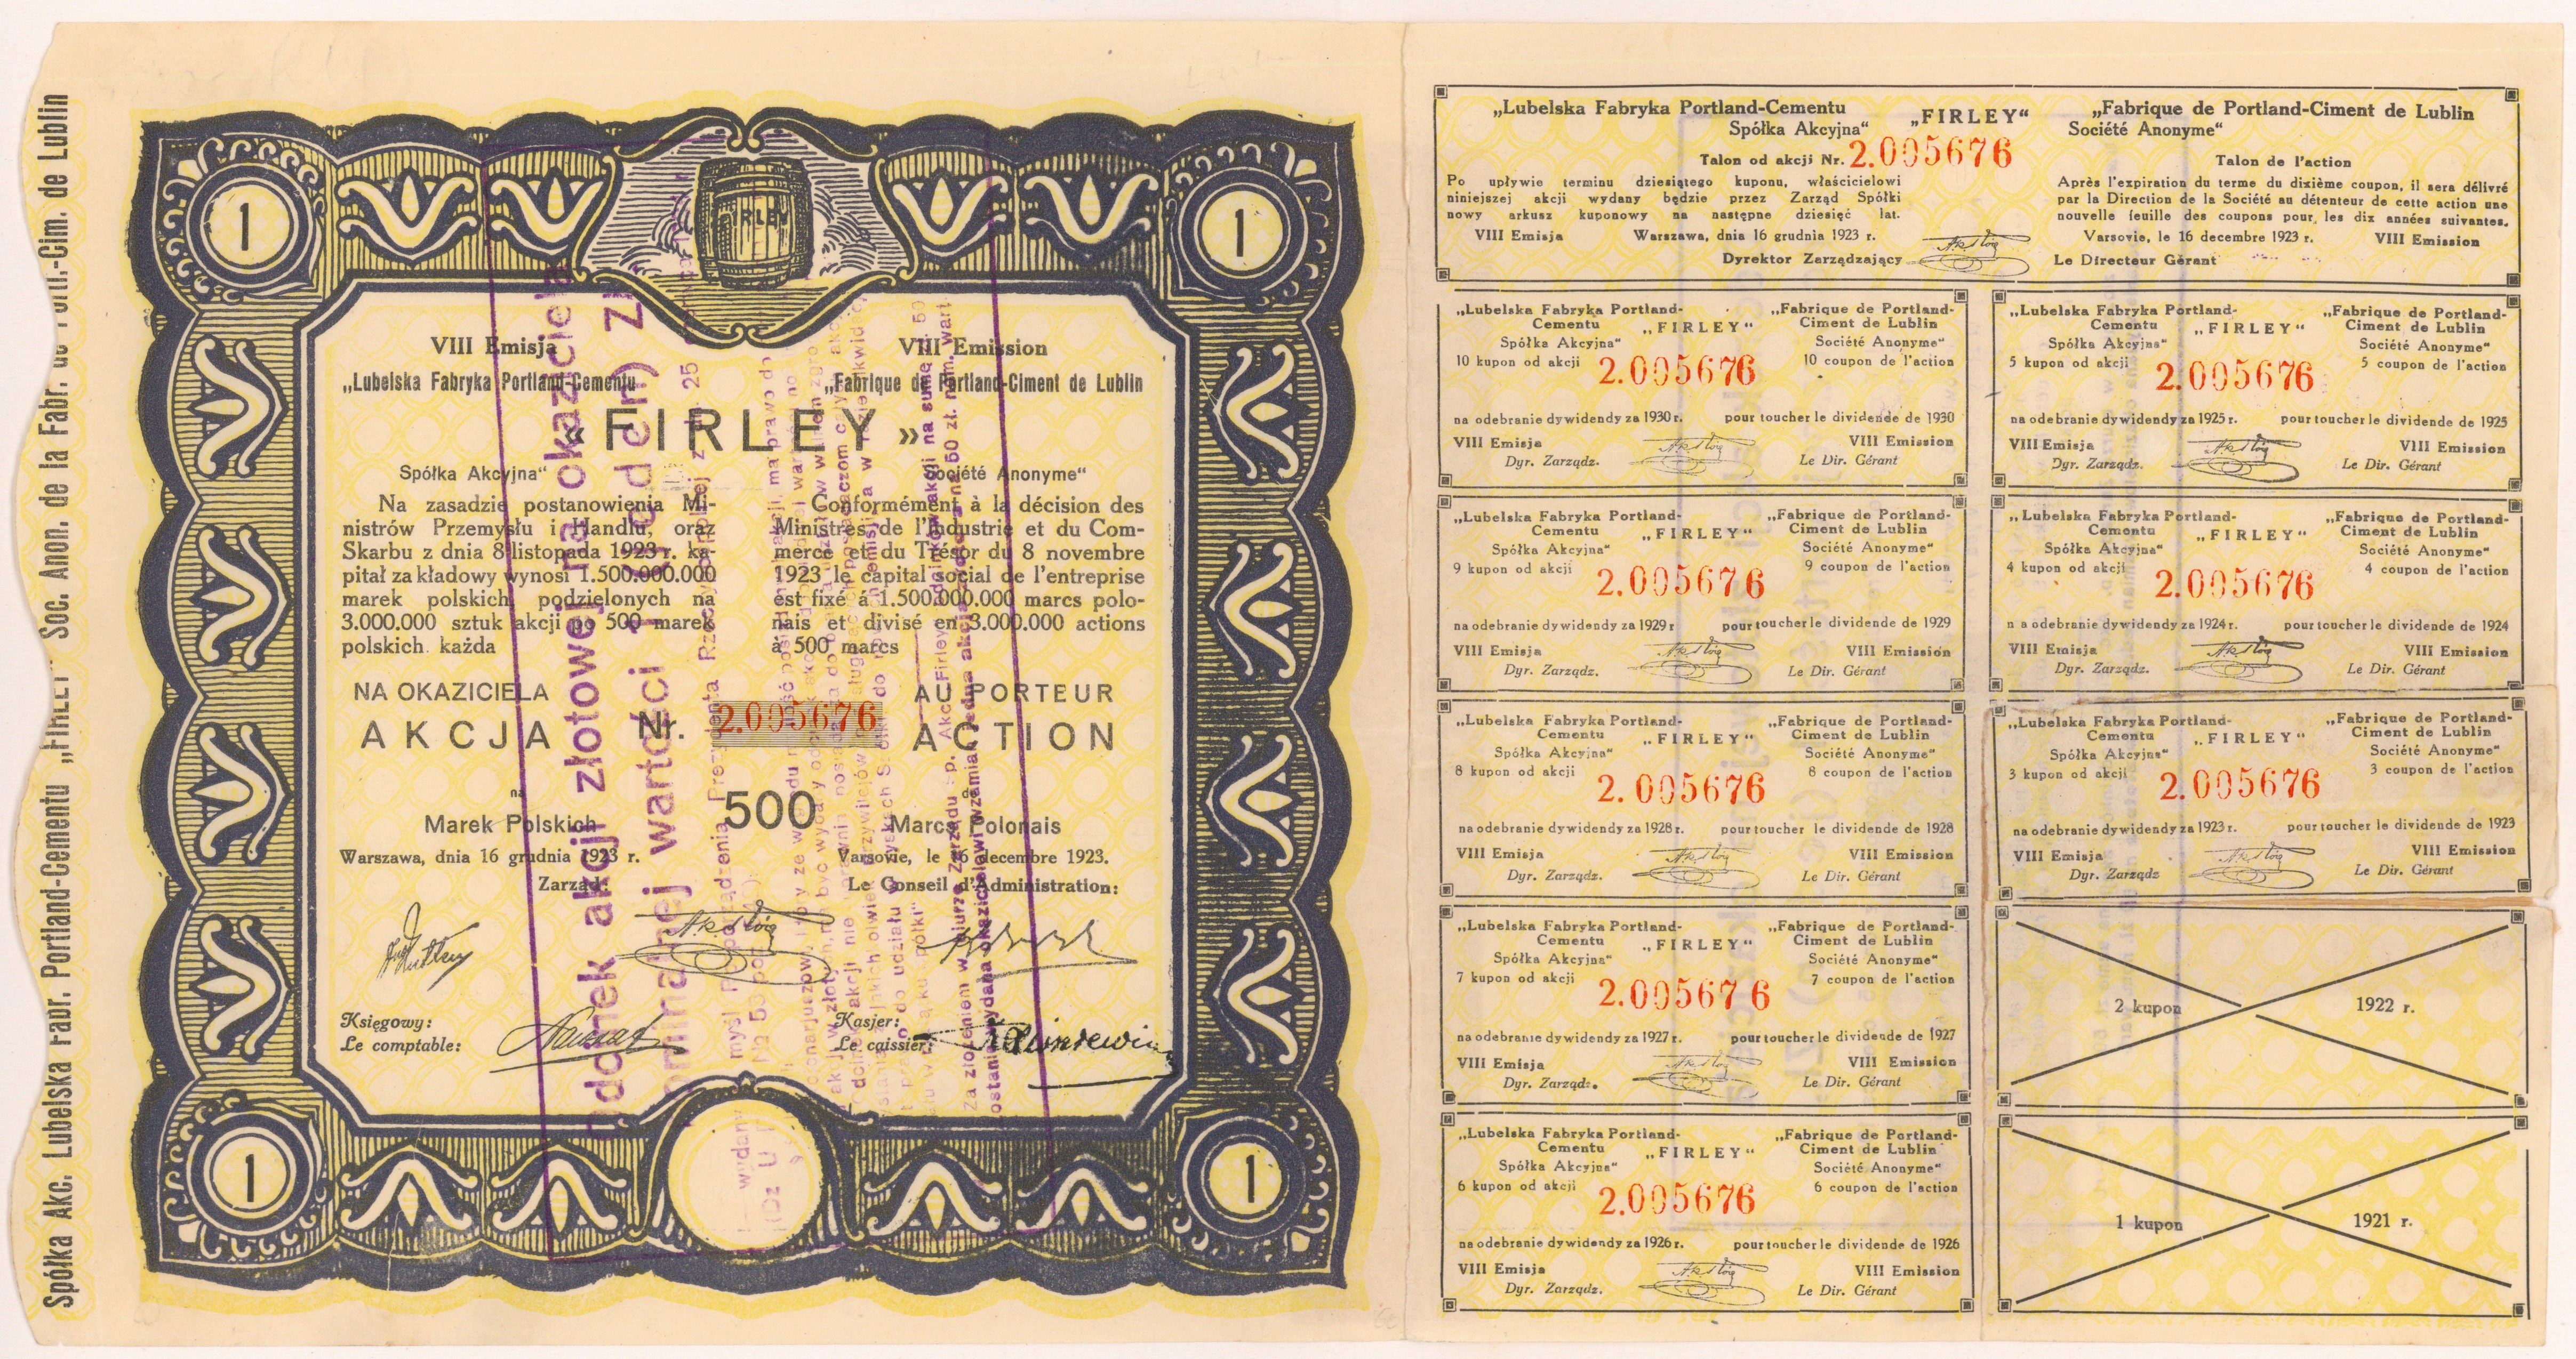 Spółka Akc. Lubelska Fabr. Portland-Cementu „FIRLEY" Soc. Anon. de la Fabr. de Portl.-Cim. de Lublin
1
FIRLEY
1
VIII Emisja
„Lubelska Fabryka Portland-Cementu
VIII Emission
„Fabrique de Portland-Ciment de Lublin
« FIRLEY »
Spółka Akcyjna"
Société Anonyme"
Na zasadzie postanowienia Mi-
nistrów Przemysłu i Handlu, oraz
Skarbu z dnia 8 listopada 1923 r. ka-
pitał zakładowy wynosi 1.500.000.000
marek polskich, podzielonych na
3.000.000 sztuk akcji po 500 marek
polskich. każda
Conformément à la décision des
Ministres de l'Industrie et du Com-
merce et du Trésor du 8 novembre
1923 le capital social de l'entreprise
est fixé á 1.500.000.000 marcs polo-
nais et divisé en 3.000.000 actions
à 500 marcs
NA OKAZICIELA
AU PORTEUR
AKCJA Nr. 2.005676 ACTION
na
de
Marek Polskich 500 Marcs Polonais
Warszawa, dnia 16 grudnia 1923 r.
Varsovie, le 16 decembre 1923.
Zarząd:
Le Conseil d'Administration:
Księgowy:
Le comptable:
Kasjer:
Le caissier:
1
1
odcinek akcji złotowej na okaziciela
nominalnej wartości 1 (jeden) Zł
„Lubelska Fabryka Portland-Cementu
Spółka Akcyjna"
„FIRLEY"
„Fabrique de Portland-Ciment de Lublin
Société Anonyme"
Talon od akcji Nr. 2.005676
Talon de l'action
Po upływie terminu dziesiątego kuponu, właścicielowi
niniejszej akcji wydany będzie przez Zarząd Spółki
nowy arkusz kuponowy na następne dziesięć lat.
Après l'expiration du terme du dixième coupon, il sera délivré
par la Direction de la Société au détenteur de cette action une
nouvelle feuille des coupons pour, les dix années suivantes.
VIII Emisja Warszawa, dnia 16 grudnia 1923 r.
Varsovie, le 16 decembre 1923 r. VIII Emission
Dyrektor Zarządzający
Le Directeur Gérant
„Lubelska Fabryka Portland-
Cementu „FIRLEY"
Spółka Akcyjna"
„Fabrique de Portland-
Ciment de Lublin
Société Anonyme"
10 kupon od akcji 2.005676 10 coupon de l'action
na odebranie dywidendy za 1930 r. pour toucher le dividende de 1930
VIII Emisja VIII Emission
Dyr. Zarządz. Le Dir. Gérant
„Lubelska Fabryka Portland-
Cementu „FIRLEY"
Spółka Akcyjna"
„Fabrique de Portland-
Ciment de Lublin
Société Anonyme"
5 kupon od akcji 2.005676 5 coupon de l'action
na odebranie dywidendy za 1925 r. pour toucher le dividende de 1925
VIII Emisja VIII Emission
Dyr. Zarządz. Le Dir. Gérant
„Lubelska Fabryka Portland-
Cementu „FIRLEY"
Spółka Akcyjna"
„Fabrique de Portland-
Ciment de Lublin
Société Anonyme"
9 kupon od akcji 2.005676 9 coupon de l'action
na odebranie dywidendy za 1929 r pour toucher le dividende de 1929
VIII Emisja VIII Emission
Dyr. Zarządz. Le Dir. Gérant
„Lubelska Fabryka Portland-
Cementu „FIRLEY"
Spółka Akcyjna"
„Fabrique de Portland-
Ciment de Lublin
Société Anonyme"
4 kupon od akcji 2.005676 4 coupon de l'action
na odebranie dywidendy za 1924 r. pour toucher le dividende de 1924
VIII Emisja VIII Emission
Dyr. Zarządz. Le Dir. Gérant
„Lubelska Fabryka Portland-
Cementu „FIRLEY"
Spółka Akcyjna"
„Fabrique de Portland-
Ciment de Lublin
Société Anonyme"
8 kupon od akcji 2.005676 8 coupon de l'action
na odebranie dywidendy za 1928 r. pour toucher le dividende de 1928
VIII Emisja VIII Emission
Dyr. Zarządz. Le Dir. Gérant
„Lubelska Fabryka Portland-
Cementu „FIRLEY"
Spółka Akcyjna"
„Fabrique de Portland-
Ciment de Lublin
Société Anonyme"
3 kupon od akcji 2.005676 3 coupon de l'action
na odebranie dywidendy za 1923 r. pour toucher le dividende de 1923
VIII Emisja VIII Emission
Dyr. Zarządz Le Dir. Gérant
„Lubelska Fabryka Portland-
Cementu „FIRLEY"
Spółka Akcyjna"
„Fabrique de Portland-
Ciment de Lublin
Société Anonyme"
7 kupon od akcji 2.005676 7 coupon de l'action
na odebranie dywidendy za 1927 r. pour toucher le dividende de 1927
VIII Emisja VIII Emission
Dyr. Zarządz. Le Dir. Gérant
2 kupon 1922 r.
„Lubelska Fabryka Portland-
Cementu „FIRLEY"
Spółka Akcyjna"
„Fabrique de Portland-
Ciment de Lublin
Société Anonyme"
6 kupon od akcji 2.005676 6 coupon de l'action
na odebranie dywidendy za 1926 r. pour toucher le dividende de 1926
VIII Emisja VIII Emission
Dyr. Zarządz. Le Dir. Gérant
1 kupon 1921 r.